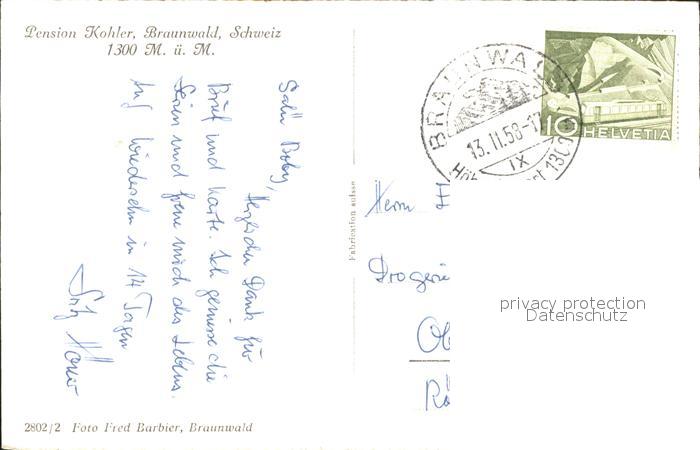 Pension Kohler, Braunwald, Schweiz
1300 M. ü. M.
Salü Boby,
Herzlichen Dank für
Brief und Karte. Ich geniesse die
Ferien und freue mich des Lebens.
Auf Wiedersehn in 14 Tagen
Fritz
2802/2 Foto Fred Barbier, Braunwald
Fabrication suisse
BRAUNWALD
13.II.58-17
IX
1300
10 HELVETIA
Herrn H
Drogerie
Ob
Rö
privacy protection
Datenschutz